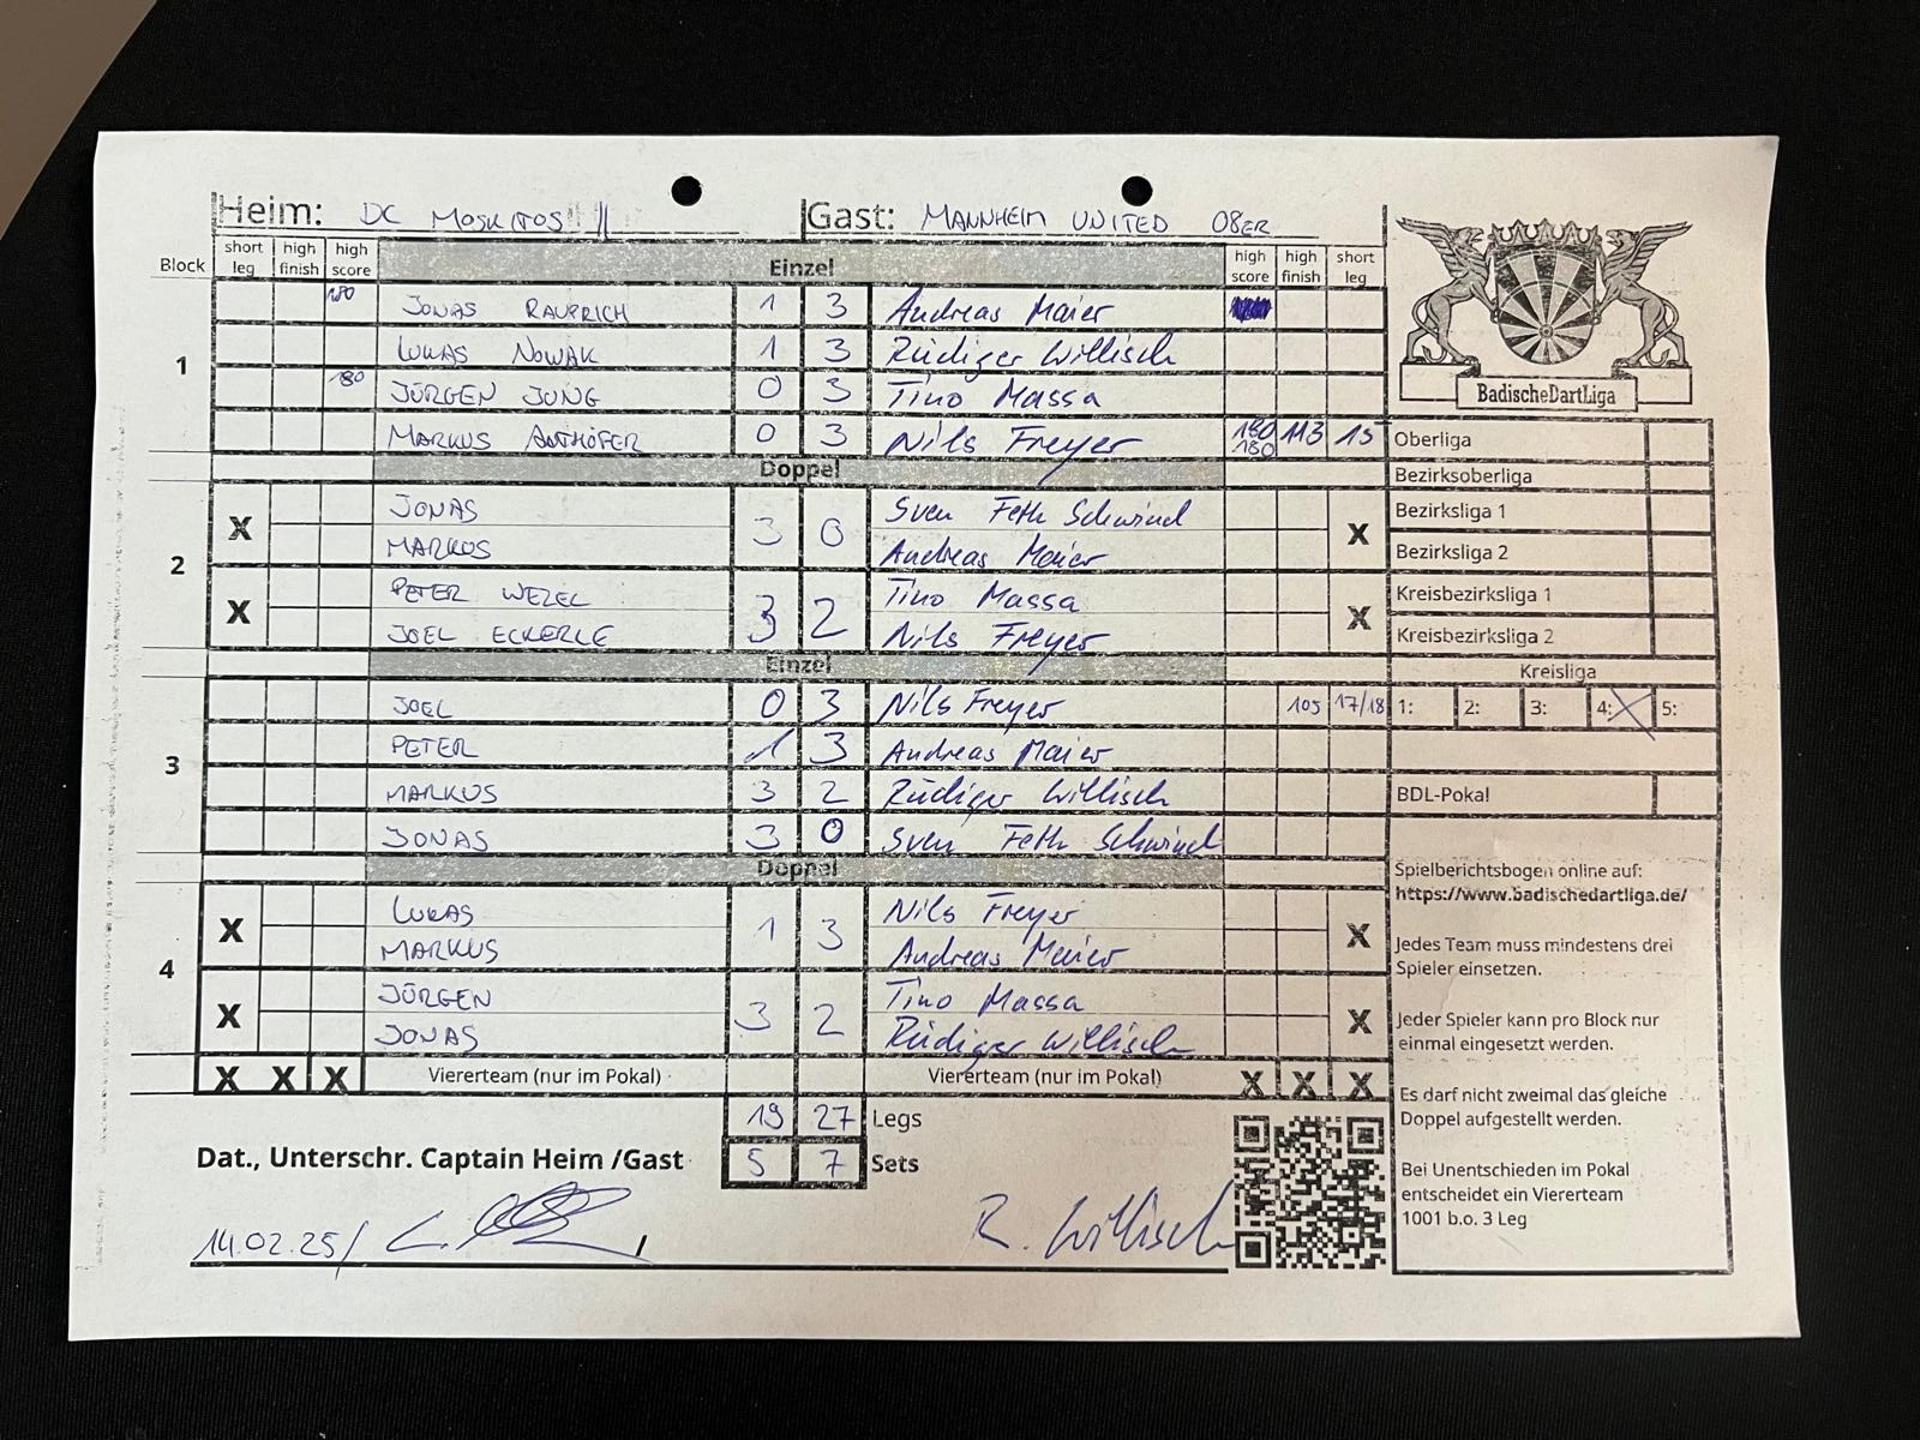 Heim: DC MOSKITOS II Gast: MANNHEIM UNITED 08ER
Block short leg high finish high score Einzel high score high finish short leg
1
180 JONAS RAUPRICH 1 3 Andreas Maier
LUKAS NOWAK 1 3 Rüdiger Willisch
180 JÜRGEN JUNG 0 3 Tino Massa
MARKUS 0 3 Nils Freyer 180 180 113 15
Doppel
2
X JONAS 3 0 Sven Feth Schwind X
MARKUS Andreas Maier
X PETER WEZEL 3 2 Tino Massa X
JOEL ECKERLE Nils Freyer
Einzel
3
JOEL 0 3 Nils Freyer 105 17/18
PETER 1 3 Andreas Maier
MARKUS 3 2 Rüdiger Willisch
JONAS 3 0 Sven Feth Schwind
Doppel
4
X LUKAS 1 3 Nils Freyer X
MARKUS Andreas Maier
X JÜRGEN 3 2 Tino Massa X
JONAS Rüdiger Willisch
X X X Viererteam (nur im Pokal) Viererteam (nur im Pokal) X X X
19 27 Legs
Dat., Unterschr. Captain Heim /Gast 5 7 Sets
14.02.25/ R. Willisch
BadischeDartLiga
Oberliga
Bezirksoberliga
Bezirksliga 1
Bezirksliga 2
Kreisbezirksliga 1
Kreisbezirksliga 2
Kreisliga
1: 2: 3: 4: X 5:
BDL-Pokal
Spielberichtsbogen online auf:
https://www.badischedartliga.de/
Jedes Team muss mindestens drei
Spieler einsetzen.
Jeder Spieler kann pro Block nur
einmal eingesetzt werden.
Es darf nicht zweimal das gleiche
Doppel aufgestellt werden.
Bei Unentschieden im Pokal
entscheidet ein Viererteam
1001 b.o. 3 Leg